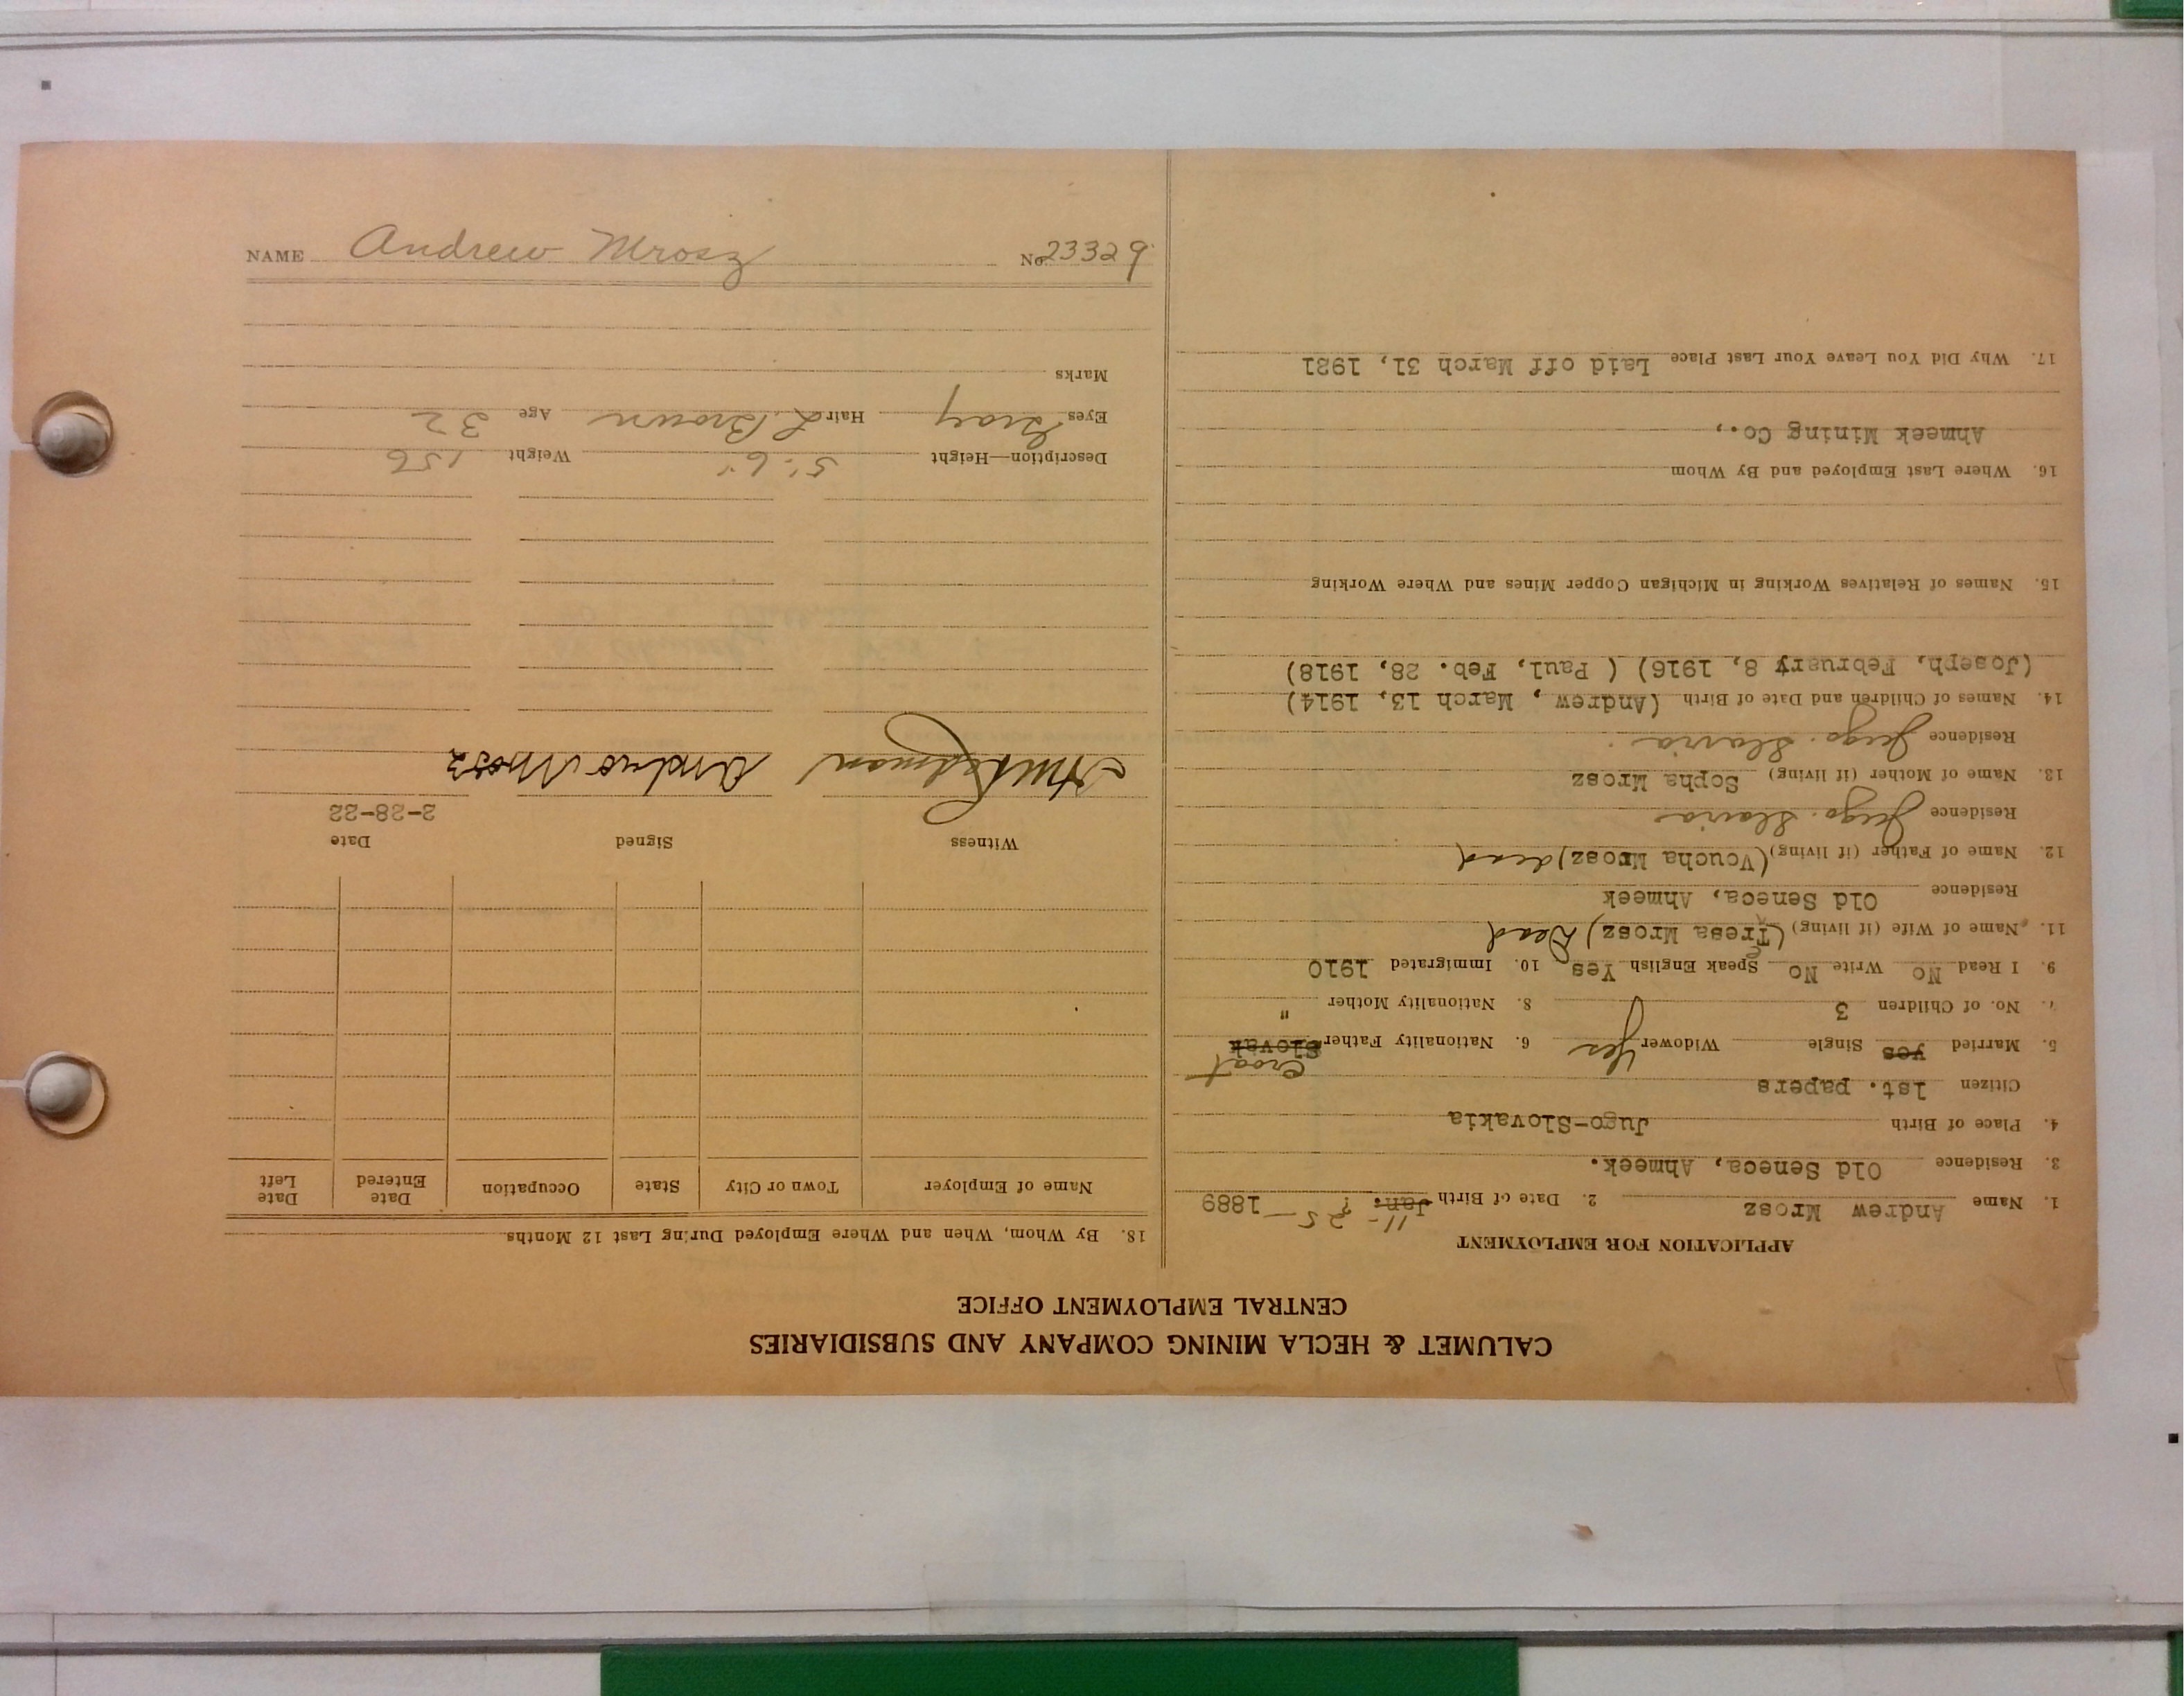 NAME Andrew Mrosz No 23329
CALUMET & HECLA MINING COMPANY AND SUBSIDIARIES
CENTRAL EMPLOYMENT OFFICE
APPLICATION FOR EMPLOYMENT
1. Name Andrew Mrosz 2. Date of Birth Jan. ? 11-25-1889
3. Residence Old Seneca, Ahmeek.
4. Place of Birth Jugo-Slovakia
Citizen 1st. papers
5. Married yes Single Widower Yes 6. Nationality Father Slovak Croat
7. No. of Children 3 8. Nationality Mother "
9. I Read No Write No Speak English Yes 10. Immigrated 1910
11. Name of Wife (if living) (Tresa Mrosz) Dead
Residence Old Seneca, Ahmeek
12. Name of Father (if living) (Voucha Mrosz) dead
Residence Jugo. Slavia
13. Name of Mother (if living) Sopha Mrosz
Residence Jugo. Slavia
14. Names of Children and Date of Birth (Andrew , March 13, 1914)
(Joseph, February 8, 1916) ( Paul, Feb. 28, 1918)
15. Names of Relatives Working in Michigan Copper Mines and Where Working
16. Where Last Employed and By Whom
Ahmeek Mining Co.,
17. Why Did You Leave Your Last Place Laid off March 31, 1921
18. By Whom, When and Where Employed During Last 12 Months
Name of Employer Town or City State Occupation Date Entered Date Left
Witness Signed Date
2-28-22
Andro Mrosz
Description—Height 5'. 6" Weight 156
Eyes Gray Hair L. Brown Age 32
Marks